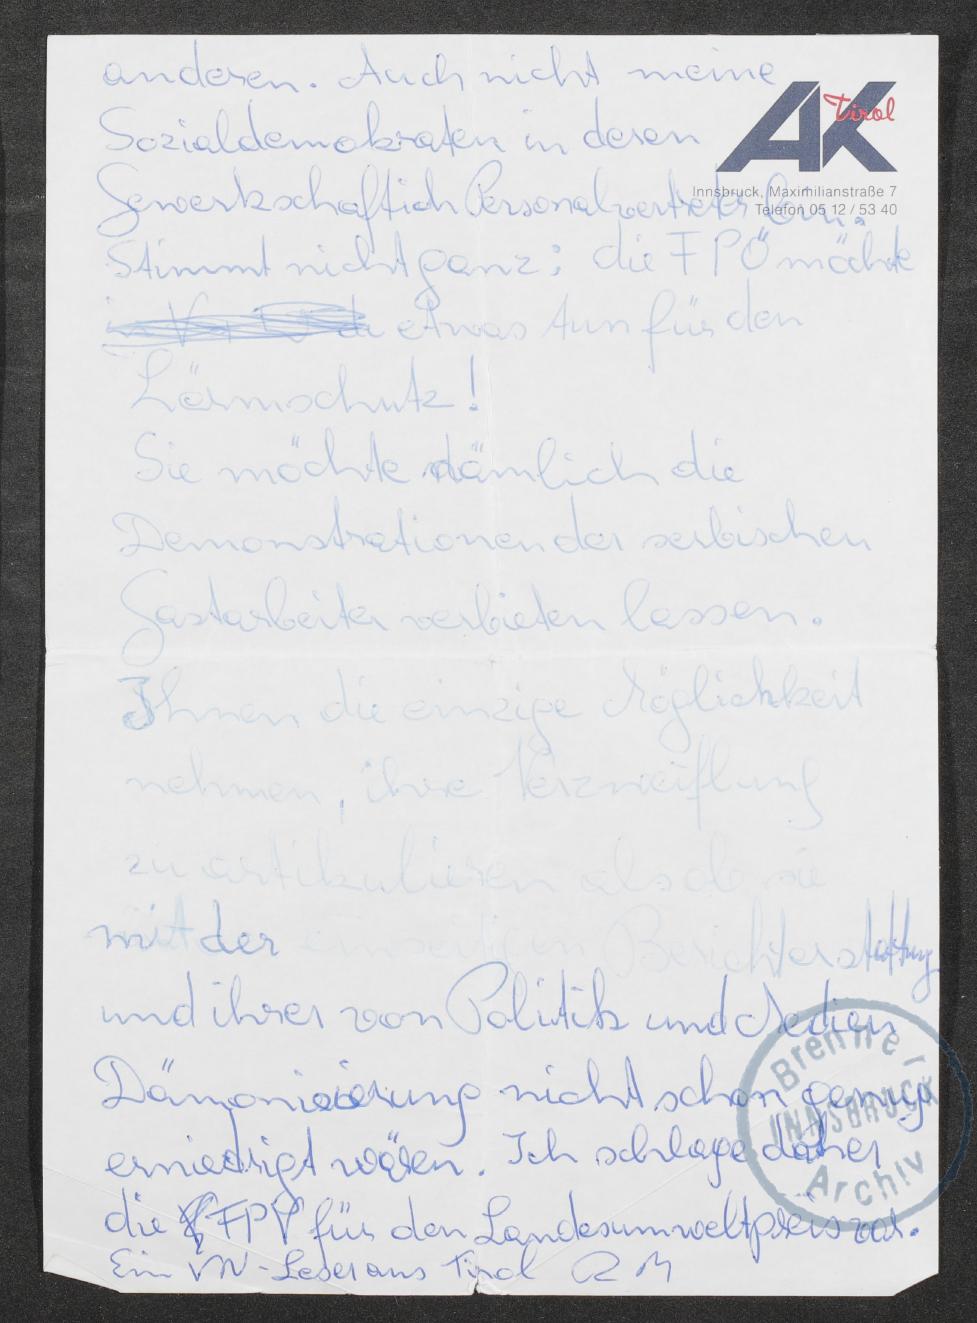 anderen. Auch nicht meine
AK Tirol
Sozialdemokraten in deren
Innsbruck, Maximilianstraße 7
Telefon 05 12 / 53 40
Gewerkschaft ich Personalvertreter bin.
Stimmt nicht ganz: die FPÖ möchte
etwas tun für den
Lärmschutz!
Sie möchte nämlich die
Demonstrationen der serbischen
Gastarbeiter verbieten lassen.
Ihnen die einzige Möglichkeit
nehmen, ihre Verzweiflung
zu artikulieren als ob sie
mit der einseitigen Berichterstattung
und ihrer von Politik und Medien
Dämonisierung nicht schon genug
erniedrigt wären. Ich schlage daher
die FPÖ für den Landesumweltpreis vor.
Ein VN-Leser aus Tirol RM
Brenner-
INNSBRUCK
Archiv